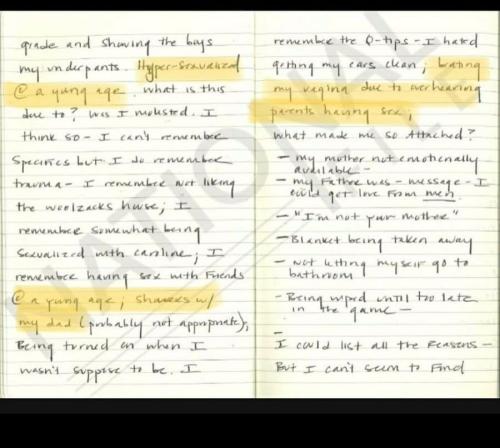 grade and showing the boys
my underpants. Hyper-sexualized
@ a yung age. what is this
due to? Was I molested. I
think so - I can't remember
specifics but I do remember
trauma - I remember not liking
the woolzacks house; I
remember somewhat being
sexualized with caroline; I
remember having sex with Friends
@ a yung age; showers w/
my dad (probably not appropriate);
Being turned on when I
wasn't suppose to be. I
remember the Q-tips - I hated
getting my ears clean;
my vagina due to overhearing
parents having sex;
what made me so Attached?
- my mother not emotionally
available -
- my Father was - message - I
could get love from men,
- "I'm not your mother"
- Blanket being taken away
- not letting myself go to
bathroom
- Being wiped until too late
in the game -
-
I could list all the reasons -
But I can't seem to Find
NATIONAL